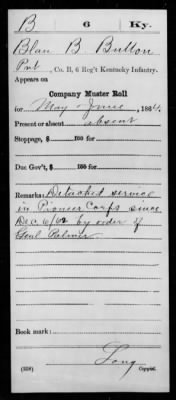 B 6 Ky.
Blan B. Bullon
Pvt, Co. B, 6 Reg't Kentucky Infantry.
Appears on
Company Muster Roll
for May & June, 1864.
Present or absent absent
Stoppage, $ 100 for
Due Gov't, $ 100 for
Remarks: Detached service
in Pioneer Corps since
Dec. 6/62 by order of
Genl. Palmer
Book mark:
Long
(358) Copyist.